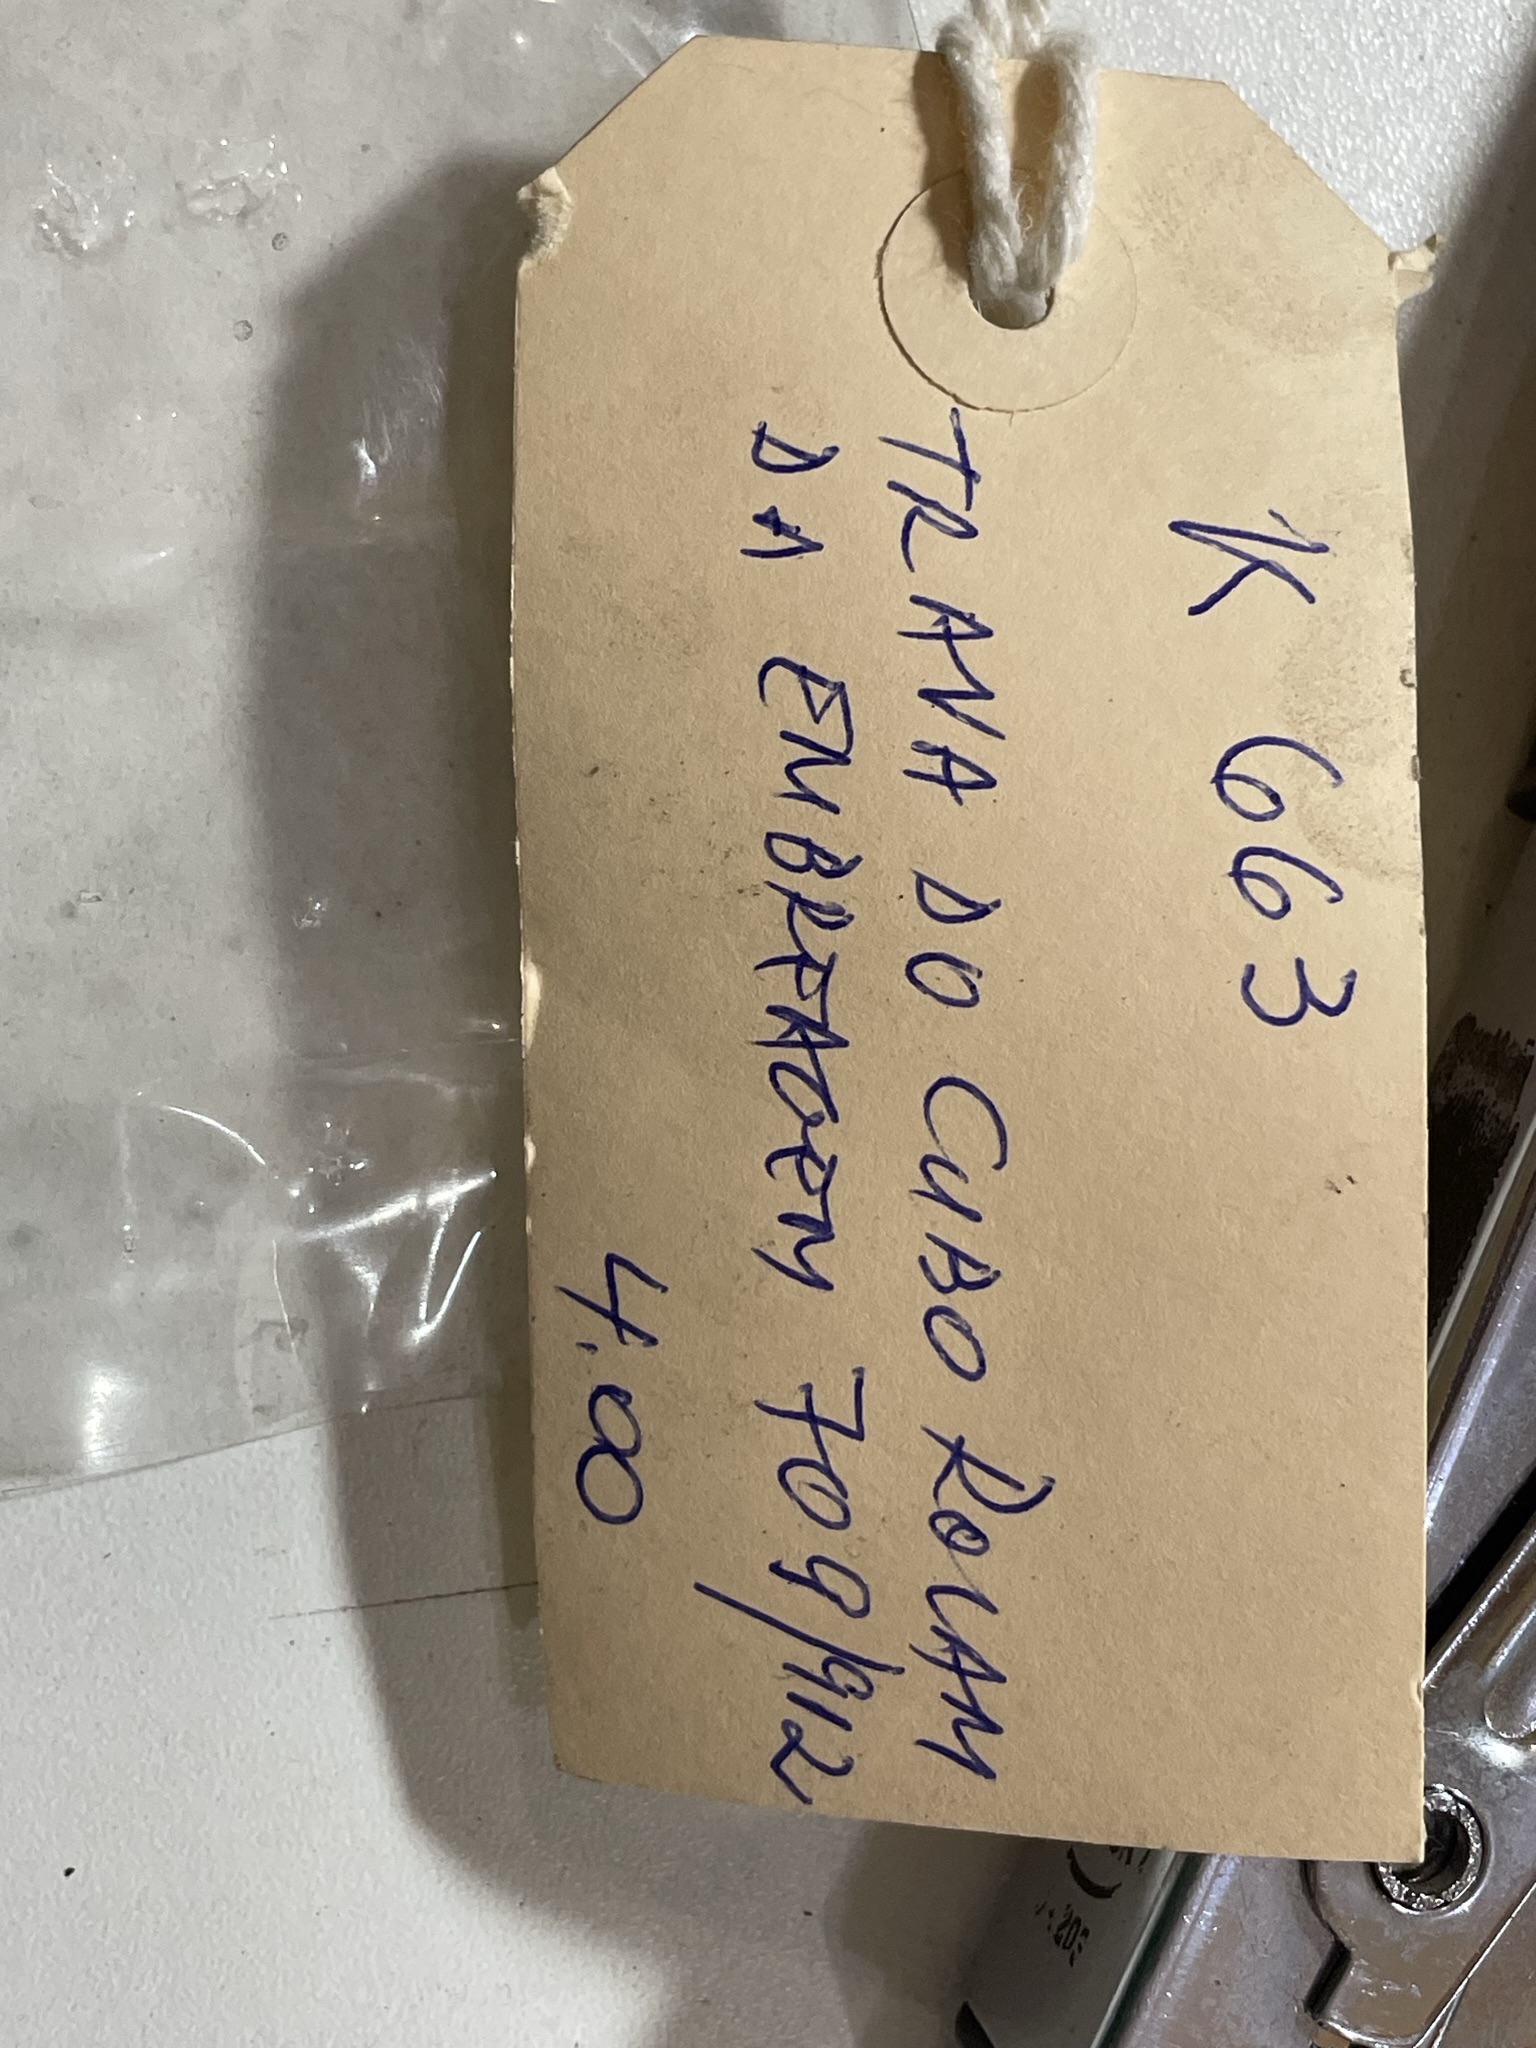 K 663
TRAVA DO CUBO ROLAM
DA EMBREAGEM 709/912
4,00